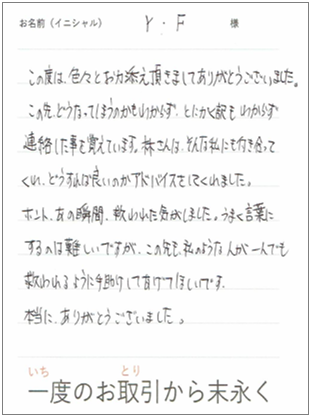 お名前（イニシャル） Y・F 様
この度は、色々とお力添え頂きましてありがとうございました。
この先、どうなってしまうのかもわからず、とにかく訳もわからず
連絡した事を覚えています。林さんは、そんな私にも向き合って
くれ、どうすれば良いのかアドバイスをしてくれました。
ホント、あの瞬間、救われた気がしました。うまく言葉に
するのは難しいですが、この先も、私のような人が一人でも
救われるように手助けしてあげてほしいです。
本当に、ありがとうございました。
いち とり
一度のお取引から末永く